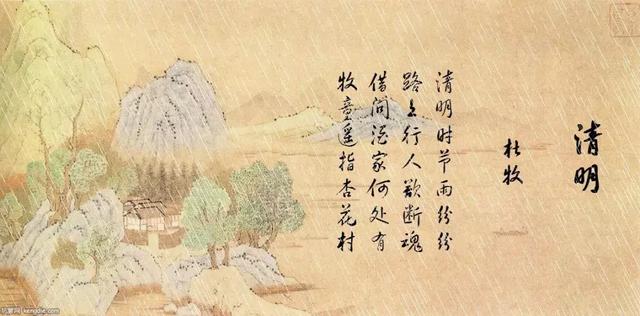 清明
杜牧
清明时节雨纷纷
路上行人欲断魂
借问酒家何处有
牧童遥指杏花村
kengdie.com